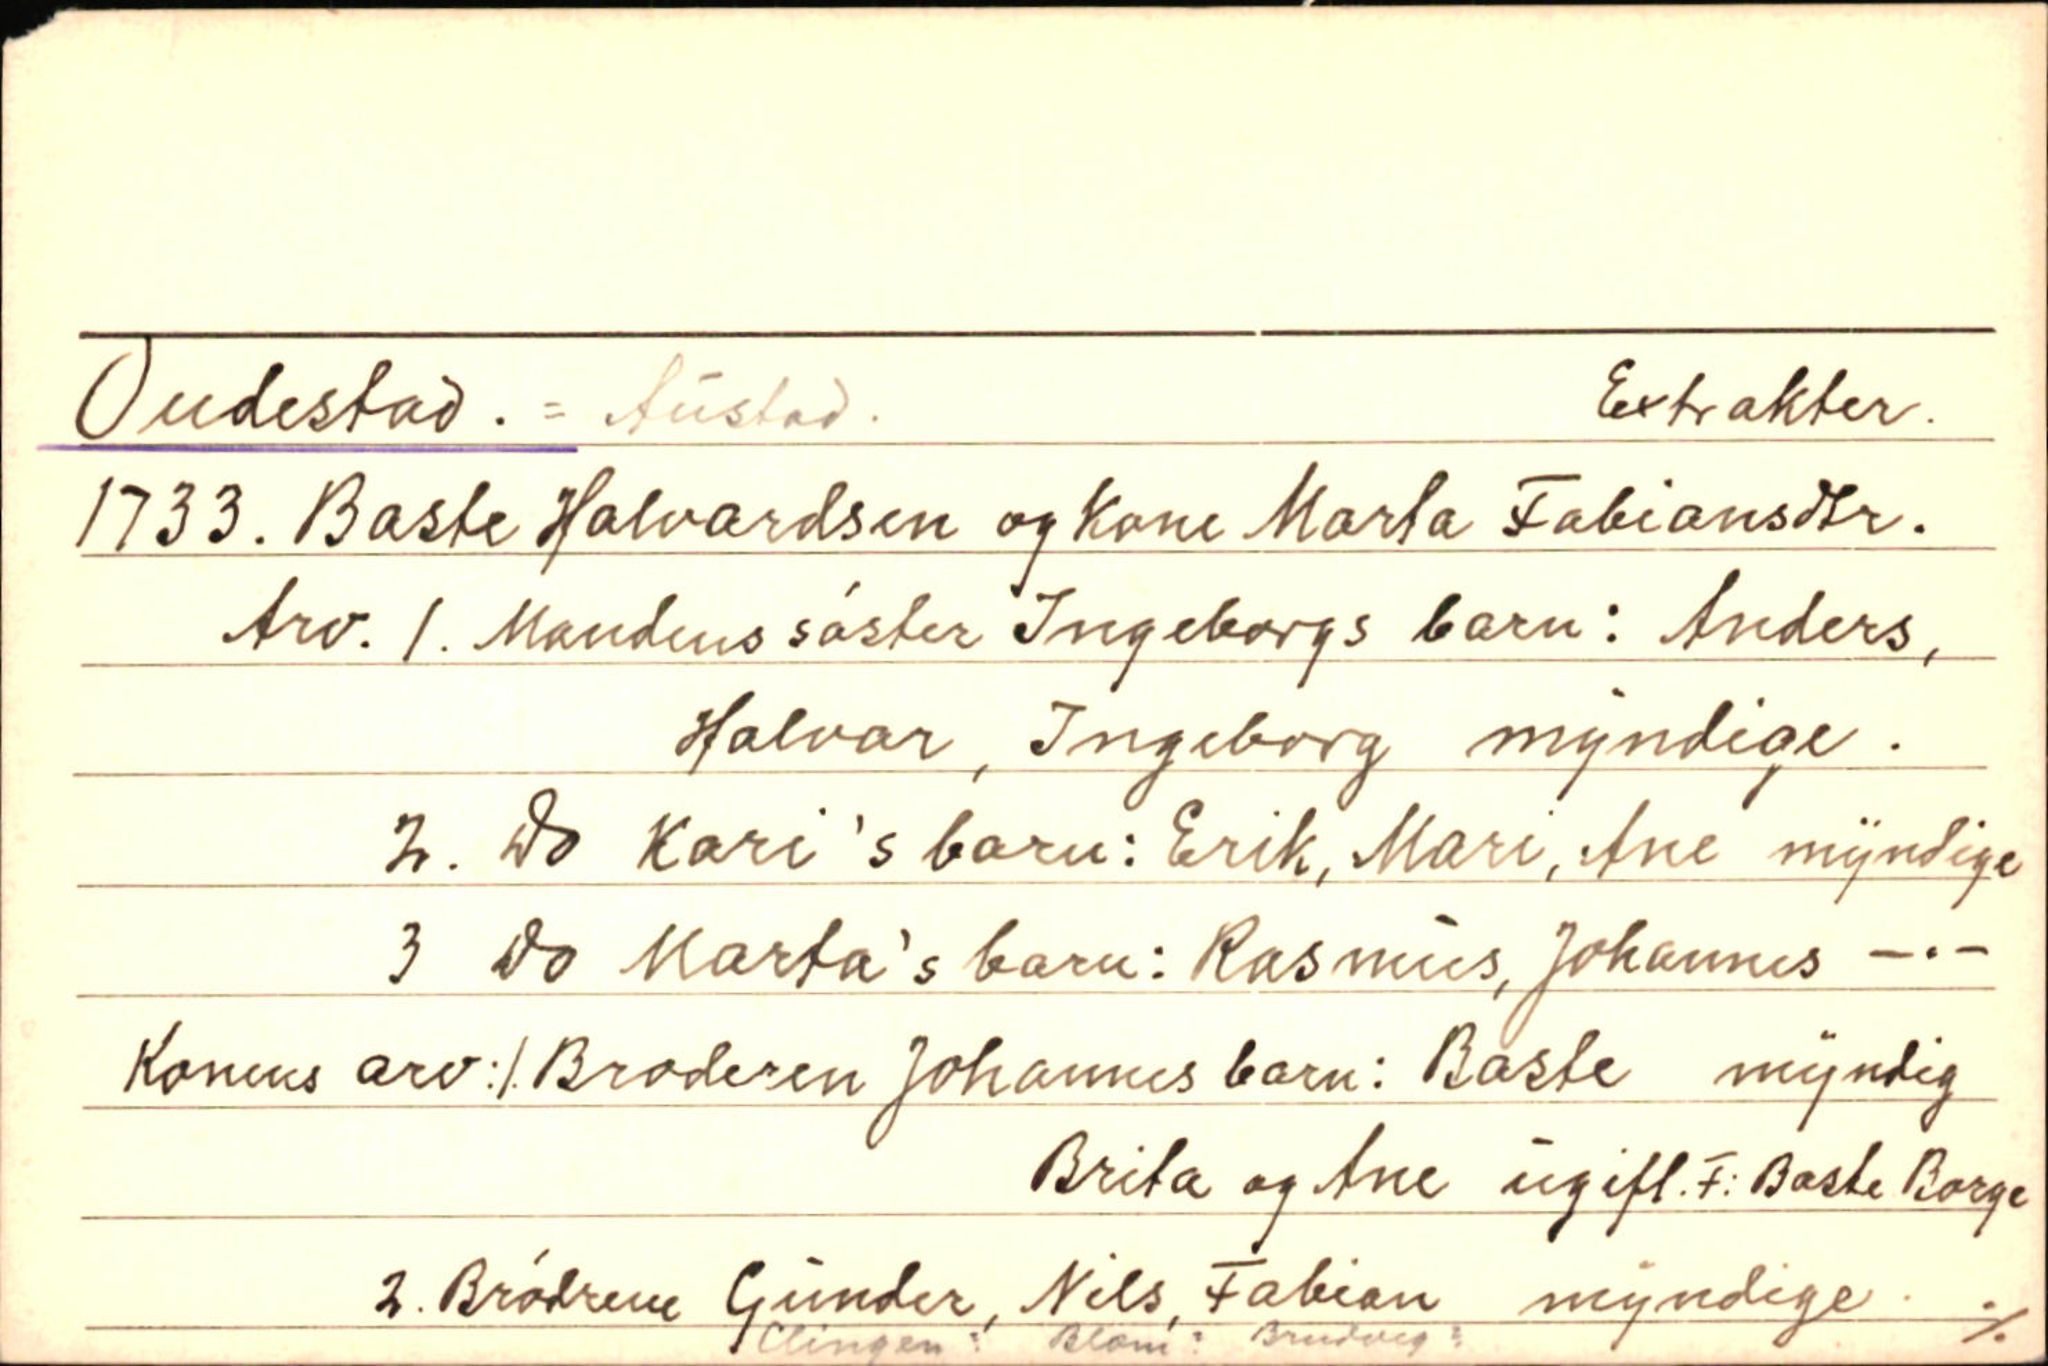 Oudestad. = Aüstad. Extrakter.
1733. Baste Halvardsen og Kone Marta Fabiansdtr.
Arv. 1. Mandens söster Ingeborgs barn: Anders,
Halvar, Ingeborg myndige.
2. Do Kari's barn: Erik, Mari, Ane myndige
3 Do Marta's barn: Rasmus, Johannes -·-
Konens arv: 1. Broderen Johannes barn: Baste myndig
Brita og Ane ugift. F: Baste Borge
2. Brödrene Gunder, Nils, Fabian myndige. ./.
Clingen: Blom: Brudvig: